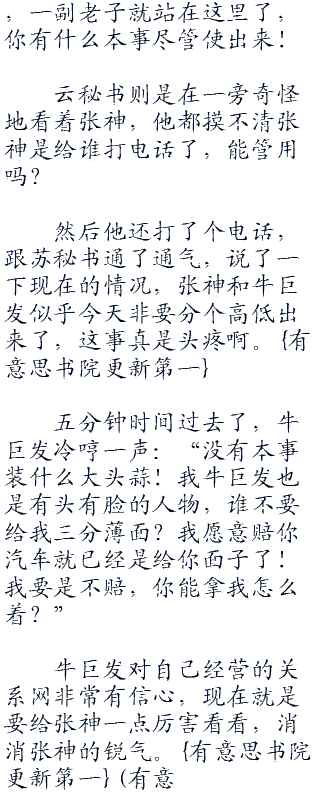 ，一副老子就站在这里了，
你有什么本事尽管使出来！
云秘书则是在一旁奇怪
地看着张神，他都摸不清张
神是给谁打电话了，能管用
吗？
然后他还打了个电话，
跟苏秘书通了通气，说了一
下现在的情况，张神和牛巨
发似乎今天非要分个高低出
来了，这事真是头疼啊。{有
意思书院更新第一}
五分钟时间过去了，牛
巨发冷哼一声：“没有本事
装什么大头蒜！我牛巨发也
是有头有脸的人物，谁不要
给我三分薄面？我愿意赔你
汽车就已经是给你面子了！
我要是不赔，你能拿我怎么
着？”
牛巨发对自己经营的关
系网非常有信心，现在就是
要给张神一点厉害看看，消
消张神的锐气。{有意思书院
更新第一}(有意